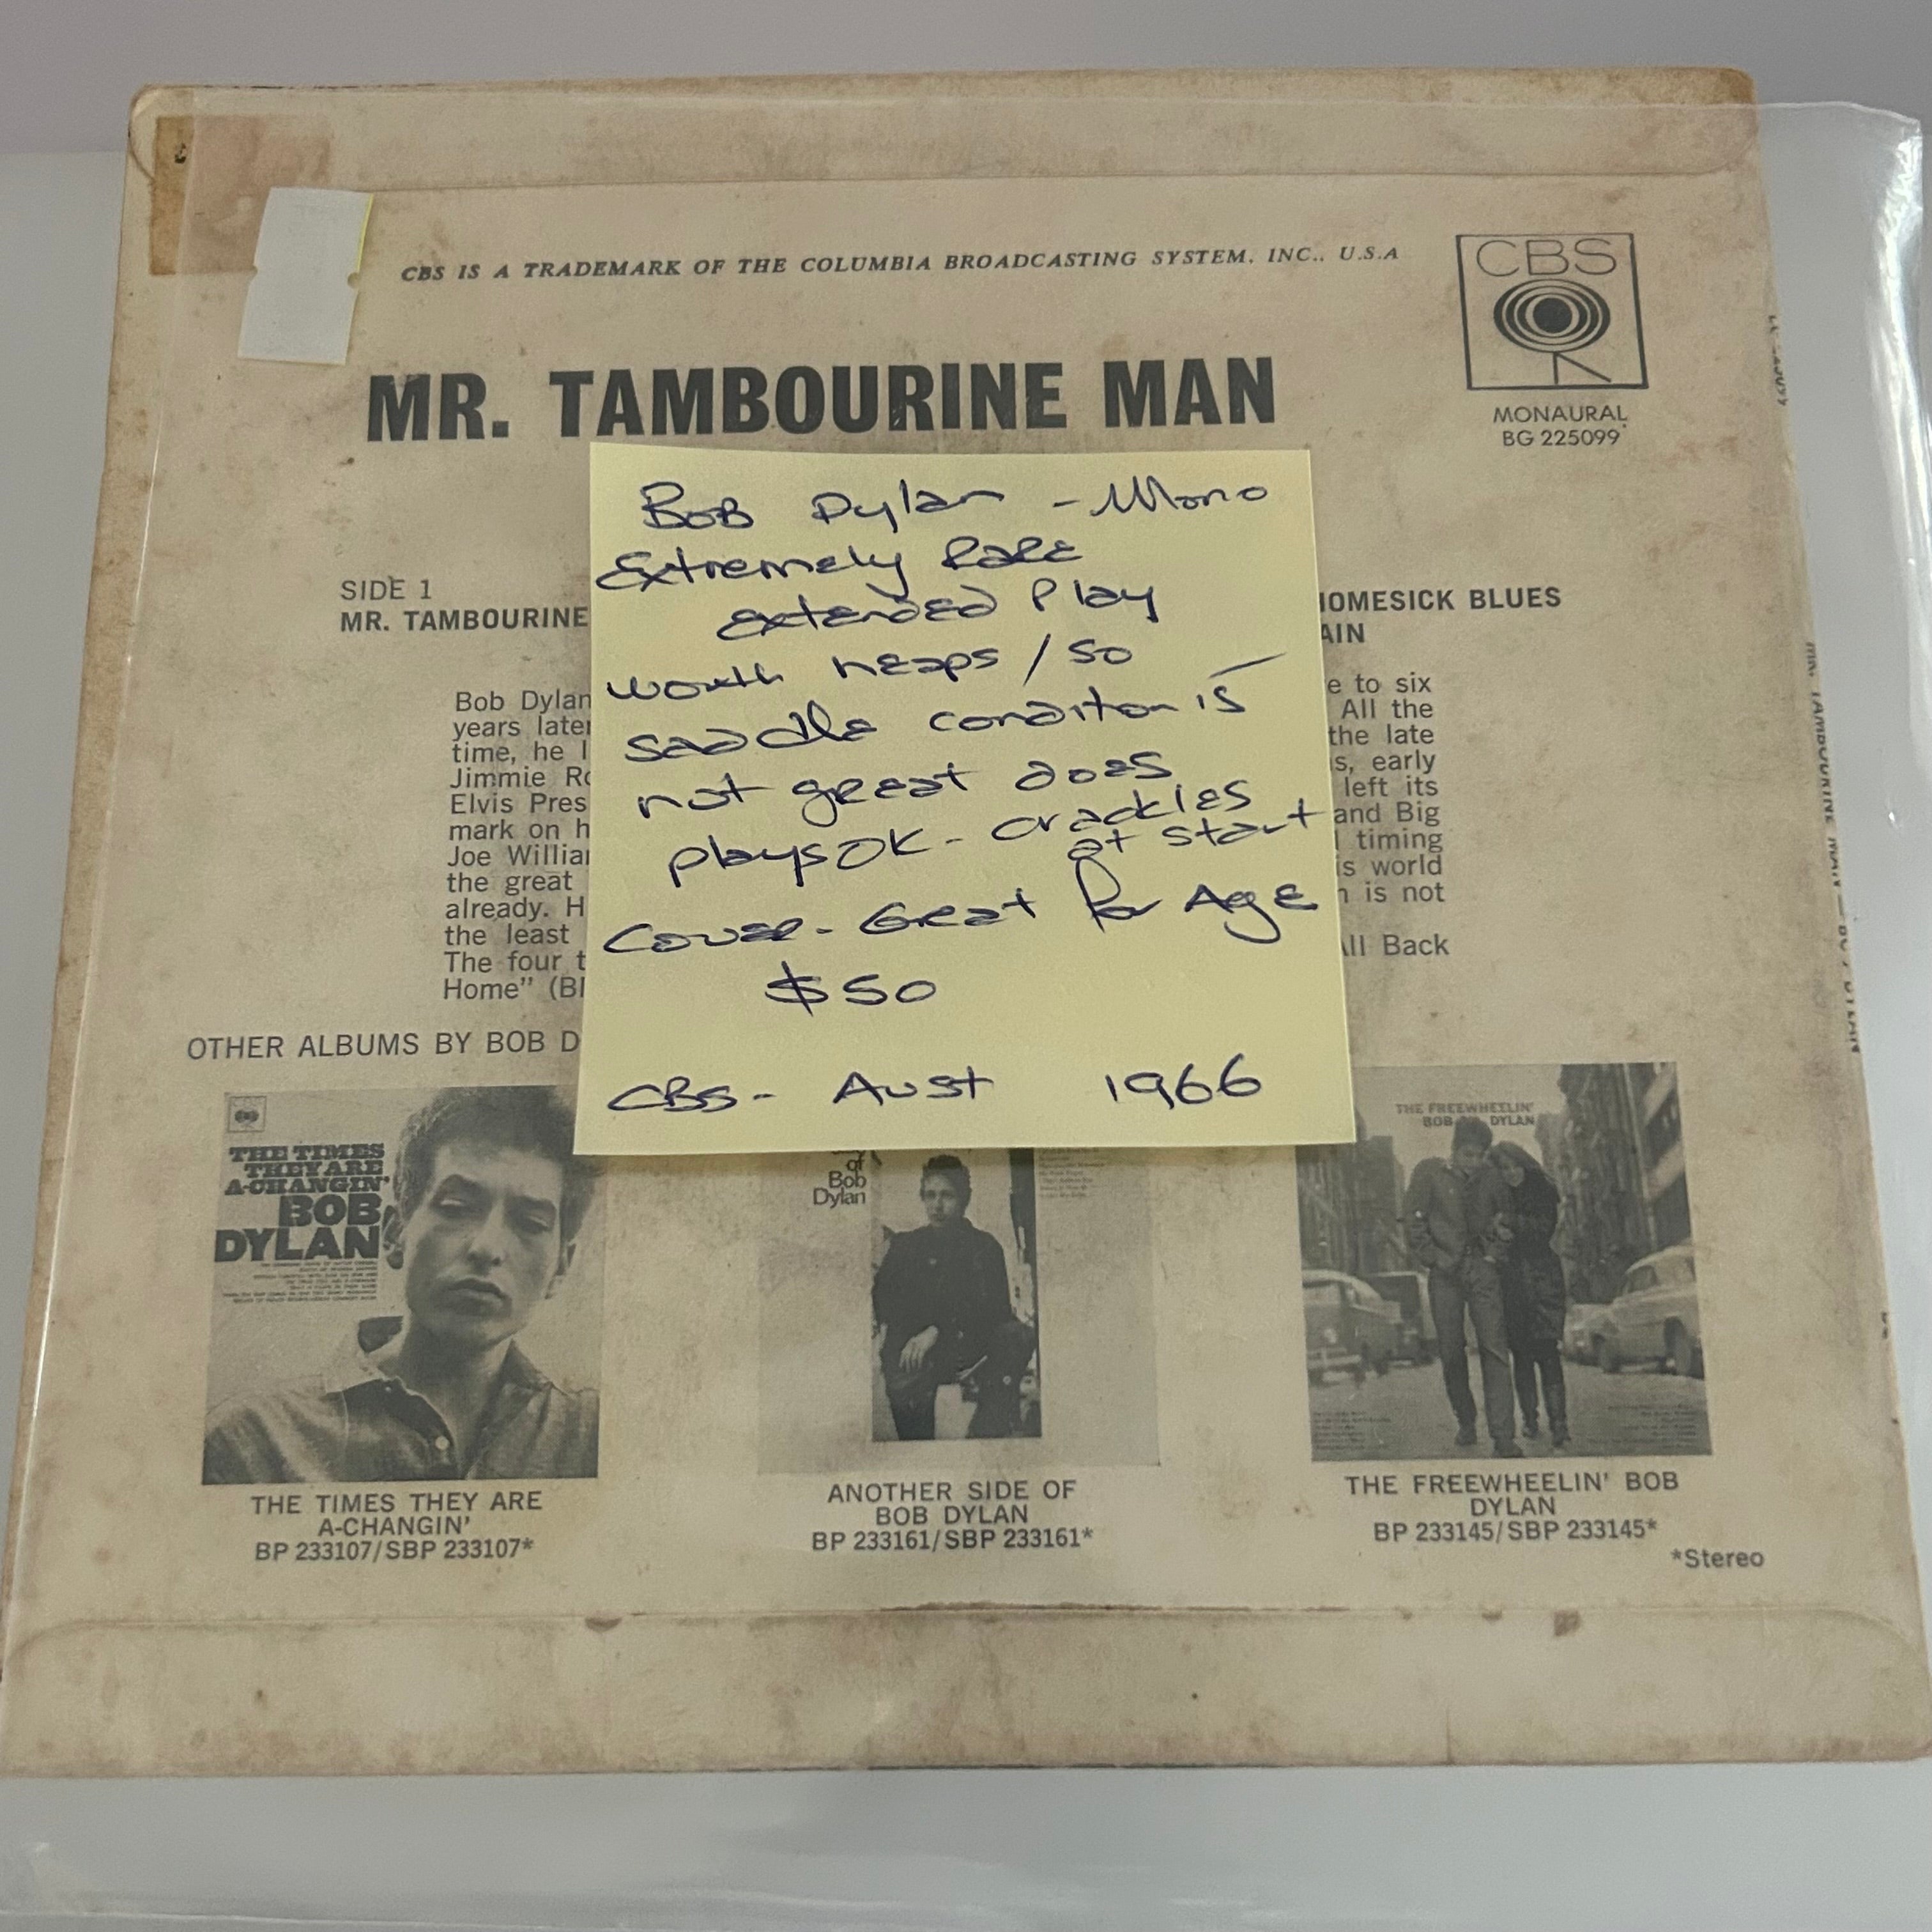 CBS IS A TRADEMARK OF THE COLUMBIA BROADCASTING SYSTEM, INC., U.S.A
CBS
MONAURAL
BG 225099
MR. TAMBOURINE MAN
Bob Dylan - Mono
Extremely Rare
Extended Play
worth heaps / so
saddle conditon is
not great does
plays OK - crackles
at start
Cover - Great for Age
$50
CBS - Aust 1966
SIDE 1
MR. TAMBOURINE
HOMESICK BLUES
AIN
Bob Dylan
years later
time, he l
Jimmie Ro
Elvis Pres
mark on h
Joe Willia
the great
already. H
the least
The four t
Home" (B
e to six
All the
the late
s, early
left its
and Big
timing
is world
n is not
All Back
OTHER ALBUMS BY BOB D
THE TIMES
THEY ARE
A-CHANGIN'
BOB
DYLAN
of
Bob
Dylan
THE FREEWHEELIN'
BOB DYLAN
THE TIMES THEY ARE
A-CHANGIN'
BP 233107/SBP 233107*
ANOTHER SIDE OF
BOB DYLAN
BP 233161/SBP 233161*
THE FREEWHEELIN' BOB
DYLAN
BP 233145/SBP 233145*
*Stereo
MR. TAMBOURINE MAN—BOB DYLAN